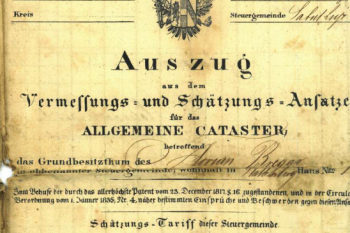 Kreis Steuergemeinde
Auszug
aus dem
Vermessungs- und Schätzungs-Ansatze
für das
ALLGEMEINE CATASTER,
betreffend
das Grundbesitzthum des
in obbenannter Steuergemeinde, wohnhaft in Haus Nr
Zum Behufe der durch das allerhöchste Patent vom 23. December 1817, § 16 zugestandenen, und in der Circular
Verordnung vom 1. Jänner 1835, Nr. 4, näher bestimmten Einsprüche und Beschwerden gegen diesen Ansatz
Schätzungs-Tariff dieser Steuergemeinde.